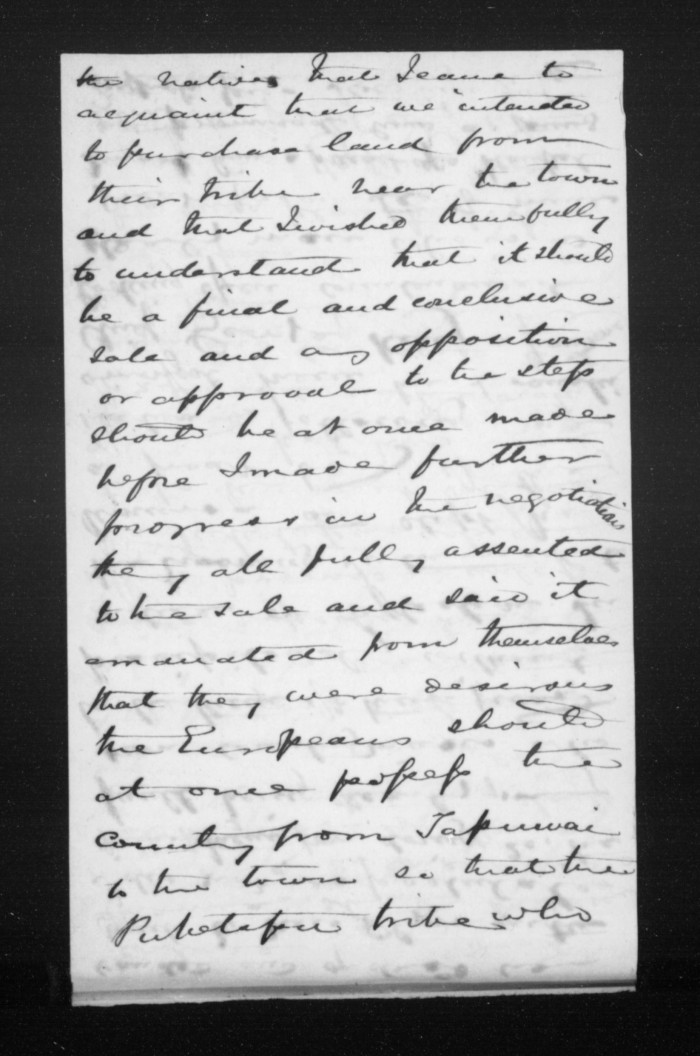 the natives that I came to
acquaint that we intended
to purchase land from
their tribe near the town
and that I wished them fully
to understand that it should
be a final and conclusive
sale and any opposition
or approval to the step
should be at once made
before I made further
progress in the negotiations
they all fully assented
to the sale and said it
emanated from themselves
that they were desirous
the Europeans should
at once possess the
country from Tapuwai
to the town so that the
Puketapu tribe who